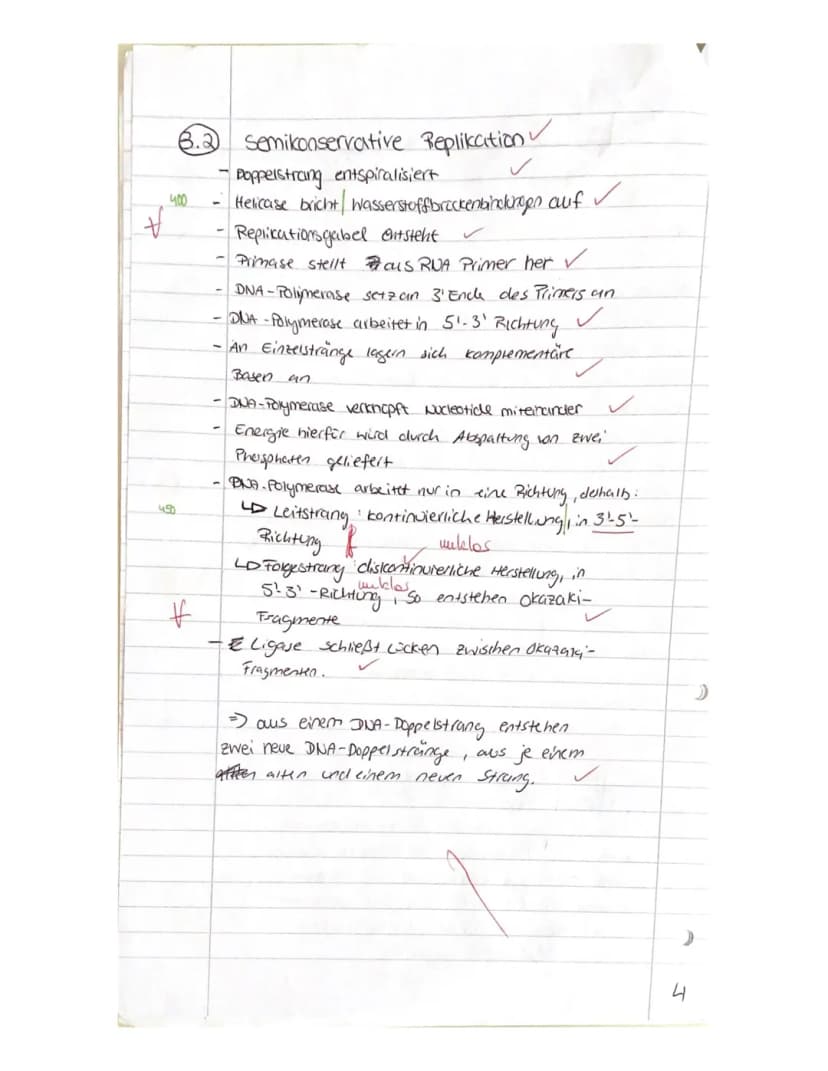 3.2 Semikonservative Replikation
- Doppelstrang entspiralisiert
400 - Helicase bricht | Wasserstoffbrückenbindungen auf
- Replikationsgabel entsteht
- Primase stellt aus RNA Primer her
- DNA-Polymerase setz an 3' Ende des Primers an
- DNA-Polymerase arbeitet in 5'-3' Richtung
- An Einzelstränge lagern sich komplementäre
Basen an
- DNA-Polymerase verknüpft Nucleotide miteinander
- Energie hierfür wird durch Abspaltung von zwei
Phosphaten geliefert
- DNA-Polymerase arbeitet nur in eine Richtung, deshalb:
450 ↳ Leitstrang: kontinuierliche Herstellung, in 3'-5'-
Richtung f unklar
↳ Folgestrang diskontinuierliche Herstellung, in
unklar
5'-3'-Richtung, so entstehen Okazaki-
Fragmente
- Ligase schließt Lücken zwischen Okazaki-
Fragmenten.
=> aus einem DNA-Doppelstrang entstehen
zwei neue DNA-Doppelstränge, aus je einem
alten und einem neuen Strang.
4